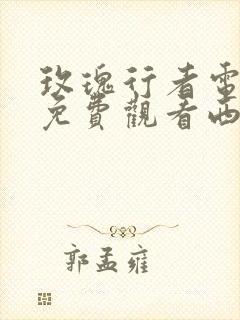 玫瑰行者電
免費觀看西
郭孟雍